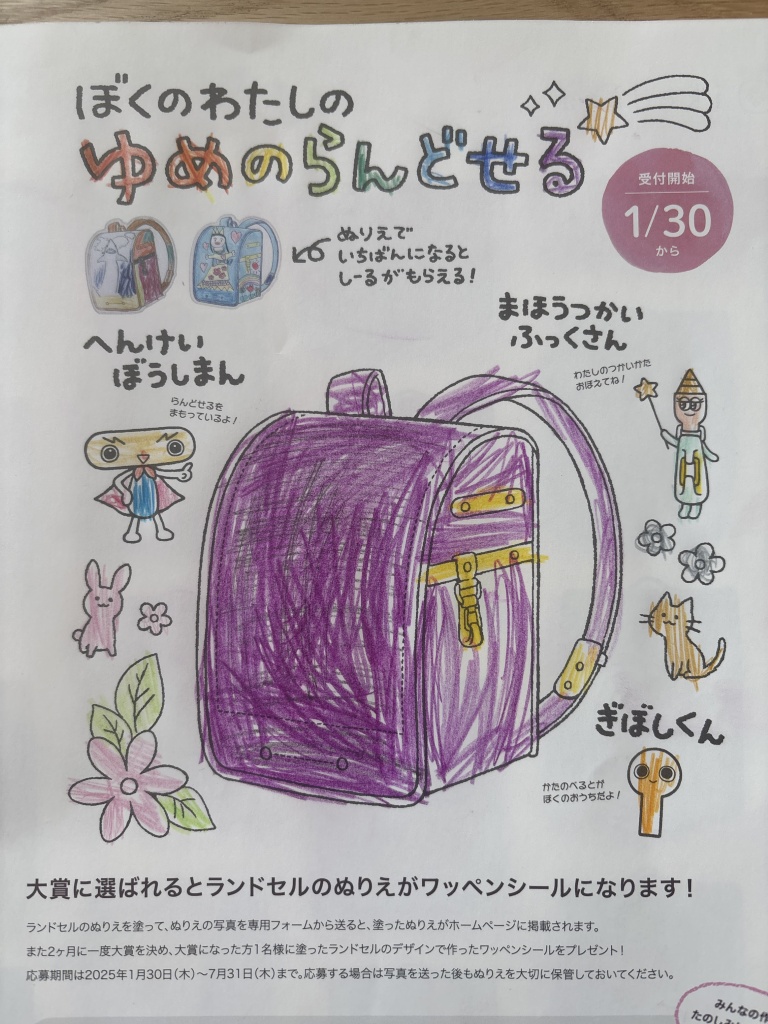 ぼくのわたしの
ゆめのらんどせる
受付開始
1/30
から
ぬりえで
いちばんになると
しーるがもらえる!
へんけい
ぼうしまん
らんどせるを
まもっているよ!
まほうつかい
ふっくさん
わたしのつかいかた
おぼえてね!
ぎぼしくん
かたのべるとが
ぼくのおうちだよ!
大賞に選ばれるとランドセルのぬりえがワッペンシールになります!
ランドセルのぬりえを塗って、ぬりえの写真を専用フォームから送ると、塗ったぬりえがホームページに掲載されます。
また2ヶ月に一度大賞を決め、大賞になった方1名様に塗ったランドセルのデザインで作ったワッペンシールをプレゼント!
応募期間は2025年1月30日(木)〜7月31日(木)まで。応募する場合は写真を送った後もぬりえを大切に保管しておいてください。
みんなの作
たのしみ